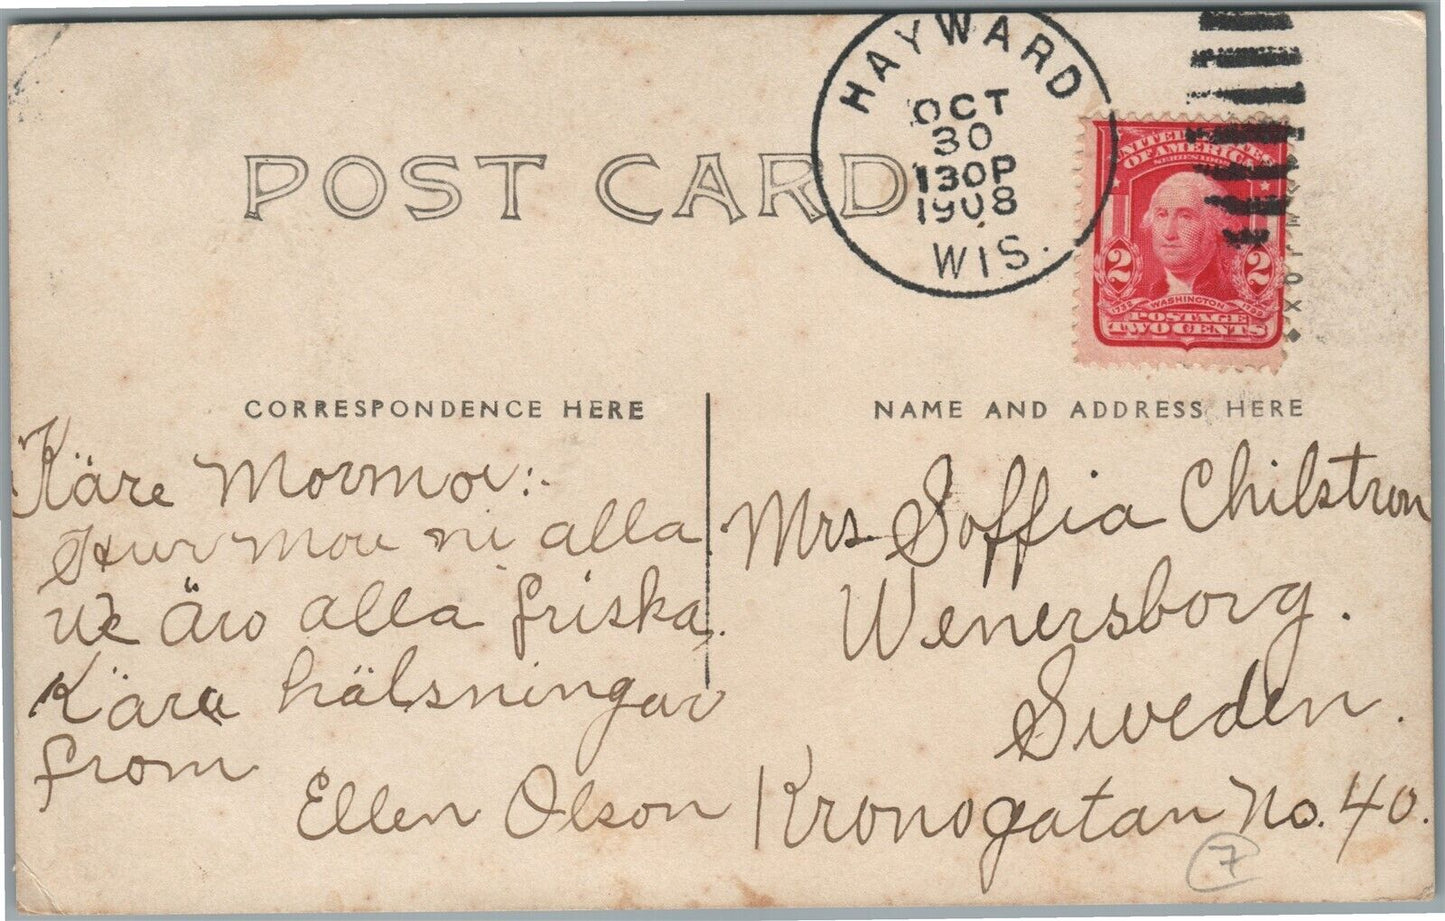 POST CARD
HAYWARD
OCT
30
130P
1908
WIS.
UNITED STATES
OF AMERICA
SERIES 1902
2 2
1732 WASHINGTON 1799
POSTAGE
TWO CENTS
CORRESPONDENCE HERE
Käre Mormor:-
Hur mor ni alla.
We äro alla friska.
Kära hälsningar
from
Ellen Olson
NAME AND ADDRESS HERE
Mrs. Soffia Chilstrom
Wenersborg.
Sweden.
Kronogatan No. 40.
7